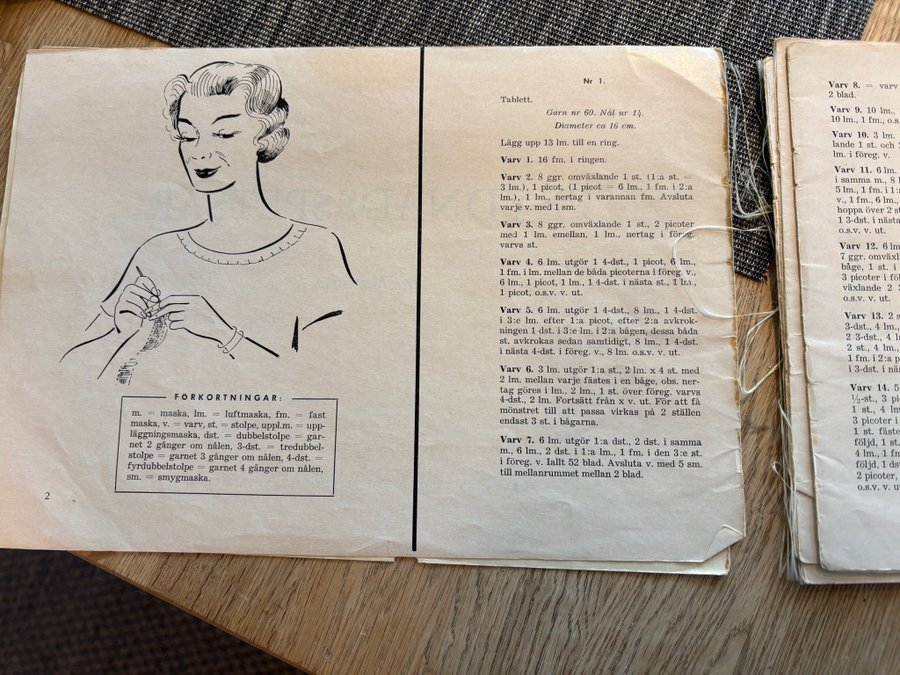 FÖRKORTNINGAR:
m. = maska, lm. = luftmaska, fm. = fast
maska, v. = varv, st. = stolpe, uppl.m. = upp-
läggningsmaska, dst. = dubbelstolpe = gar-
net 2 gånger om nålen, 3-dst. = tredubbel-
stolpe = garnet 3 gånger om nålen, 4-dst. =
fyrdubbelstolpe = garnet 4 gånger om nålen,
sm. = smygmaska.
2
Nr 1.
Tablett.
Garn nr 60. Nål nr 1½.
Diameter ca 16 cm.
Lägg upp 13 lm. till en ring.
Varv 1. 16 fm. i ringen.
Varv 2. 8 ggr. omväxlande 1 st. (1:a st. =
3 lm.), 1 picot, (1 picot = 6 lm., 1 fm. i 2:a
lm.), 1 lm., nertag i varannan fm. Avsluta
varje v. med 1 sm.
Varv 3. 8 ggr. omväxlande 1 st., 2 picoter
med 1 lm. emellan, 1 lm., nertag i föreg.
varvs st.
Varv 4. 6 lm. utgör 1 4-dst., 1 picot, 6 lm.,
1 fm. i lm. mellan de båda picoterna i föreg. v.,
6 lm., 1 picot, 1 lm., 1 4-dst. i nästa st., 1 lm.,
1 picot, o.s.v. v. ut.
Varv 5. 6 lm. utgör 1 4-dst., 8 lm., 1 4-dst.
i 3:e lm. efter 1:a picot, efter 2:a avkrok-
ningen 1 dst. i 3:e lm. i 2:a bågen, dessa båda
st. avkrokas sedan samtidigt, 8 lm., 1 4-dst.
i nästa 4-dst. i föreg. v., 8 lm. o.s.v. v. ut.
Varv 6. 3 lm. utgör 1:a st., 2 lm. x 4 st. med
2 lm. mellan varje fästes i en båge, obs. ner-
tag göres i lm., 2 lm., 1 st. över föreg. varvs
4-dst., 2 lm. Fortsätt från x v. ut. För att få
mönstret till att passa virkas på 2 ställen
endast 3 st. i bågarna.
Varv 7. 6 lm. utgör 1:a dst., 2 dst. i samma
m., 6 lm., 2 dst. i 1:a lm., 1 fm. i den 3:e st.
i föreg. v. Iallt 52 blad. Avsluta v. med 5 sm.
till mellanrummet mellan 2 blad.
Varv 8. = varv
2 blad.
Varv 9. 10 lm.,
10 lm., 1 fm., o.s.
Varv 10. 3 lm.
lande 1 st. och
lm. i föreg. v.
Varv 11. 6 lm.
i samma m., 8
5 lm., 1 fm. i 1:
v., 1 fm., 6 lm.,
hoppa över 2 st
1 3-dst. i nästa
o.s.v. v. ut.
Varv 12. 6 lm.
7 ggr. omväxl
båge, 1 st. i
3 picoter i föl
växlande 2
o.s.v. v. ut.
Varv 13. 2 s
3-dst., 4 lm.,
2 dst., 4 lm.
2 st., 4 lm.,
1 fm. i 2:a p
i 3-dst. i näs
Varv 14. 5
½-st., 3 pi
1 st., 4 lm
3 picoter i
1 st. fäste
följd, 1 st
4 lm., 1 fm
följd, 1 ds
2 picoter,
o.s.v. v. u